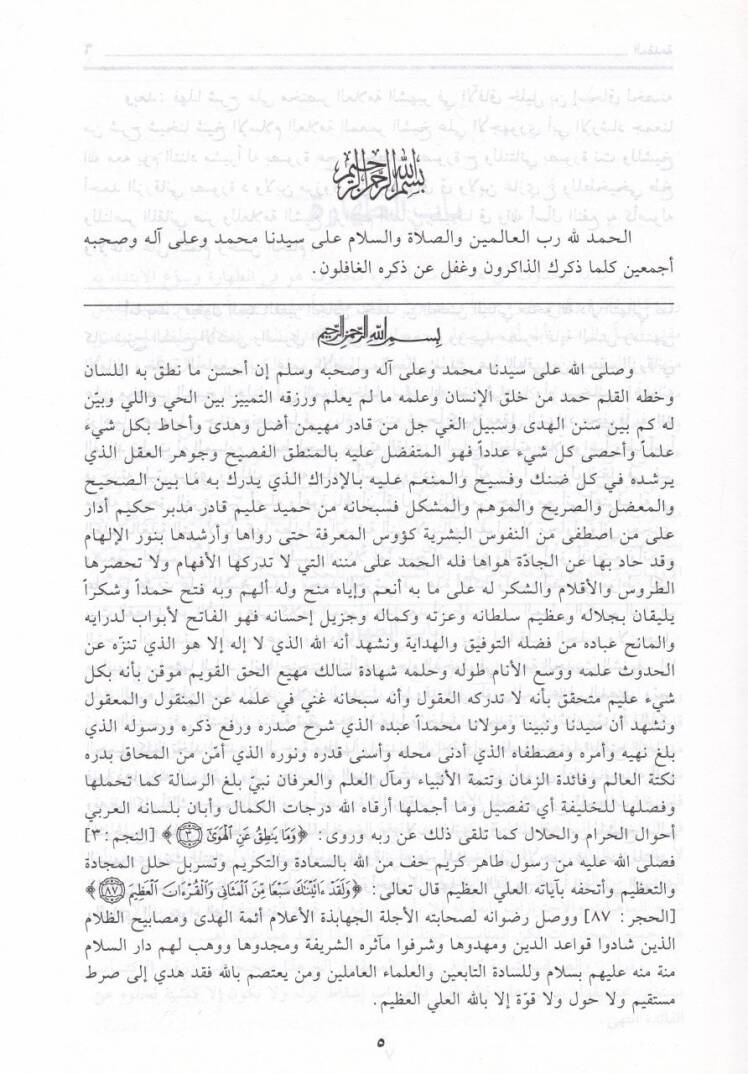 بسم الله الرحمن الرحيم
الحمد لله رب العالمين والصلاة والسلام على سيدنا محمد وعلى آله وصحبه
أجمعين كلما ذكرك الذاكرون وغفل عن ذكره الغافلون.
بسم الله الرحمن الرحيم
وصلى الله على سيدنا محمد وعلى آله وصحبه وسلم إن أحسن ما نطق به اللسان
وخطه القلم حمد من خلق الإنسان وعلمه ما لم يعلم ورزقه التمييز بين الحي واللي وبيّن
له كم بين سنن الهدى وسبيل الغي جل من قادر مهيمن أضل وهدى وأحاط بكل شيء
علماً وأحصى كل شيء عدداً فهو المتفضل عليه بالمنطق الفصيح وجوهر العقل الذي
يرشده في كل ضنك وفسيح والمنعم عليه بالإدراك الذي يدرك به ما بين الصحيح
والمعضل والصريح والموهم والمشكل فسبحانه من حميد عليم قادر مدبر حكيم أدار
على من اصطفى من النفوس البشرية كؤوس المعرفة حتى رواها وأرشدها بنور الإلهام
وقد حاد بها عن الجادّة هواها فله الحمد على مننه التي لا تدركها الأفهام ولا تحصرها
الطروس والأقلام والشكر له على ما به أنعم وإياه منح وله ألهم وبه فتح حمداً وشكراً
يليقان بجلاله وعظيم سلطانه وعزته وكماله وجزيل إحسانه فهو الفاتح لأبواب لدرايه
والمانح عباده من فضله التوفيق والهداية ونشهد أنه الله الذي لا إله إلا هو الذي تنزّه عن
الحدوث علمه ووسع الأنام طوله وحلمه شهادة سالك مهيع الحق القويم موقن بأنه بكل
شيء عليم متحقق بأنه لا تدركه العقول وأنه سبحانه غني في علمه عن المنقول والمعقول
ونشهد أن سيدنا ونبينا ومولانا محمداً عبده الذي شرح صدره ورفع ذكره ورسوله الذي
بلغ نهيه وأمره ومصطفاه الذي أدنى محله وأسنى قدره ونوره الذي أمّن من المحاق بدره
نكتة العالم وفائدة الزمان وتتمة الأنبياء ومآل العلم والعرفان نبيّ بلغ الرسالة كما تحملها
وفصلها للخليفة أي تفصيل وما أجملها أرقاه الله درجات الكمال وأبان بلسانه العربي
أحوال الحرام والحلال كما تلقى ذلك عن ربه وروى: ﴿وَمَا يَنطِقُ عَنِ ٱلْهَوَىٰٓ ٣﴾ [النجم: ٣]
فصلى الله عليه من رسول طاهر كريم حف من الله بالسعادة والتكريم وتسربل حلل المجادة
والتعظيم وأتحفه بآياته العلي العظيم قال تعالى: ﴿وَلَقَدْ ءَاتَيْنَٰكَ سَبْعًا مِّنَ ٱلْمَثَانِى وَٱلْقُرْءَانَ ٱلْعَظِيمَ ٨٧﴾
[الحجر: ٨٧] ووصل رضوانه لصحابته الأجلة الجهابذة الأعلام أئمة الهدى ومصابيح الظلام
الذين شادوا قواعد الدين ومهدوها وشرفوا مآثره الشريفة ومجدوها ووهب لهم دار السلام
منة منه عليهم بسلام وللسادة التابعين والعلماء العاملين ومن يعتصم بالله فقد هدي إلى صرط
مستقيم ولا حول ولا قوّة إلا بالله العلي العظيم.
٥